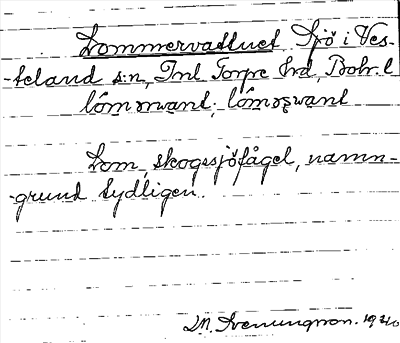 Lommervattnet Sjö i Ves-
-teland s:n, Inl. Torpe hrd, Bohr. l
lómɔrwant; lómɔʂwant
Lom, skogssjöfågel, namn-
-grund tydligen.
M. Svenungsson. 1940